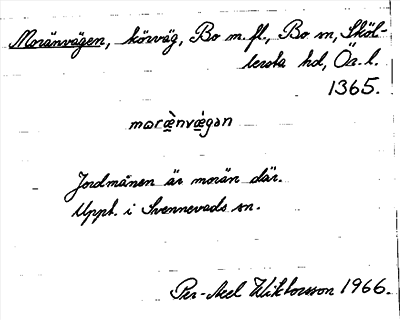 Moränvägen, körväg, Bo m.fl., Bo sn, Sköl-
lersta hd, Öa.l.
1365.
moræ̀nvæ̀gən
Jordmånen är morän där.
Uppt. i Svennevads sn.
Per-Axel Wiktorsson 1966.